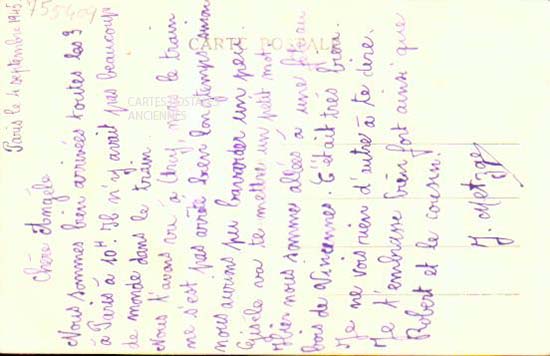 755409
CARTE POSTALE
CARTES POSTALES
ANCIENNES
Paris le 4 septembre 1945.
Chère Angèle
Nous sommes bien arrivées toutes les 3
à Paris à 10H. Il n'y avait pas beaucoup
de monde dans le train.
Nous t'avons vu à mais le train
ne s'est pas arrêté bien longtemps sinon
nous aurions pu bavarder un peu.
Gisèle va te mettre un petit mot
Hier nous sommes allées à une fête au
bois de Vincennes. C'était très bien.
Je ne vois rien d'autre à te dire.
Je t'embrasse bien fort ainsi que
Robert et le cousin.
J. Metzge